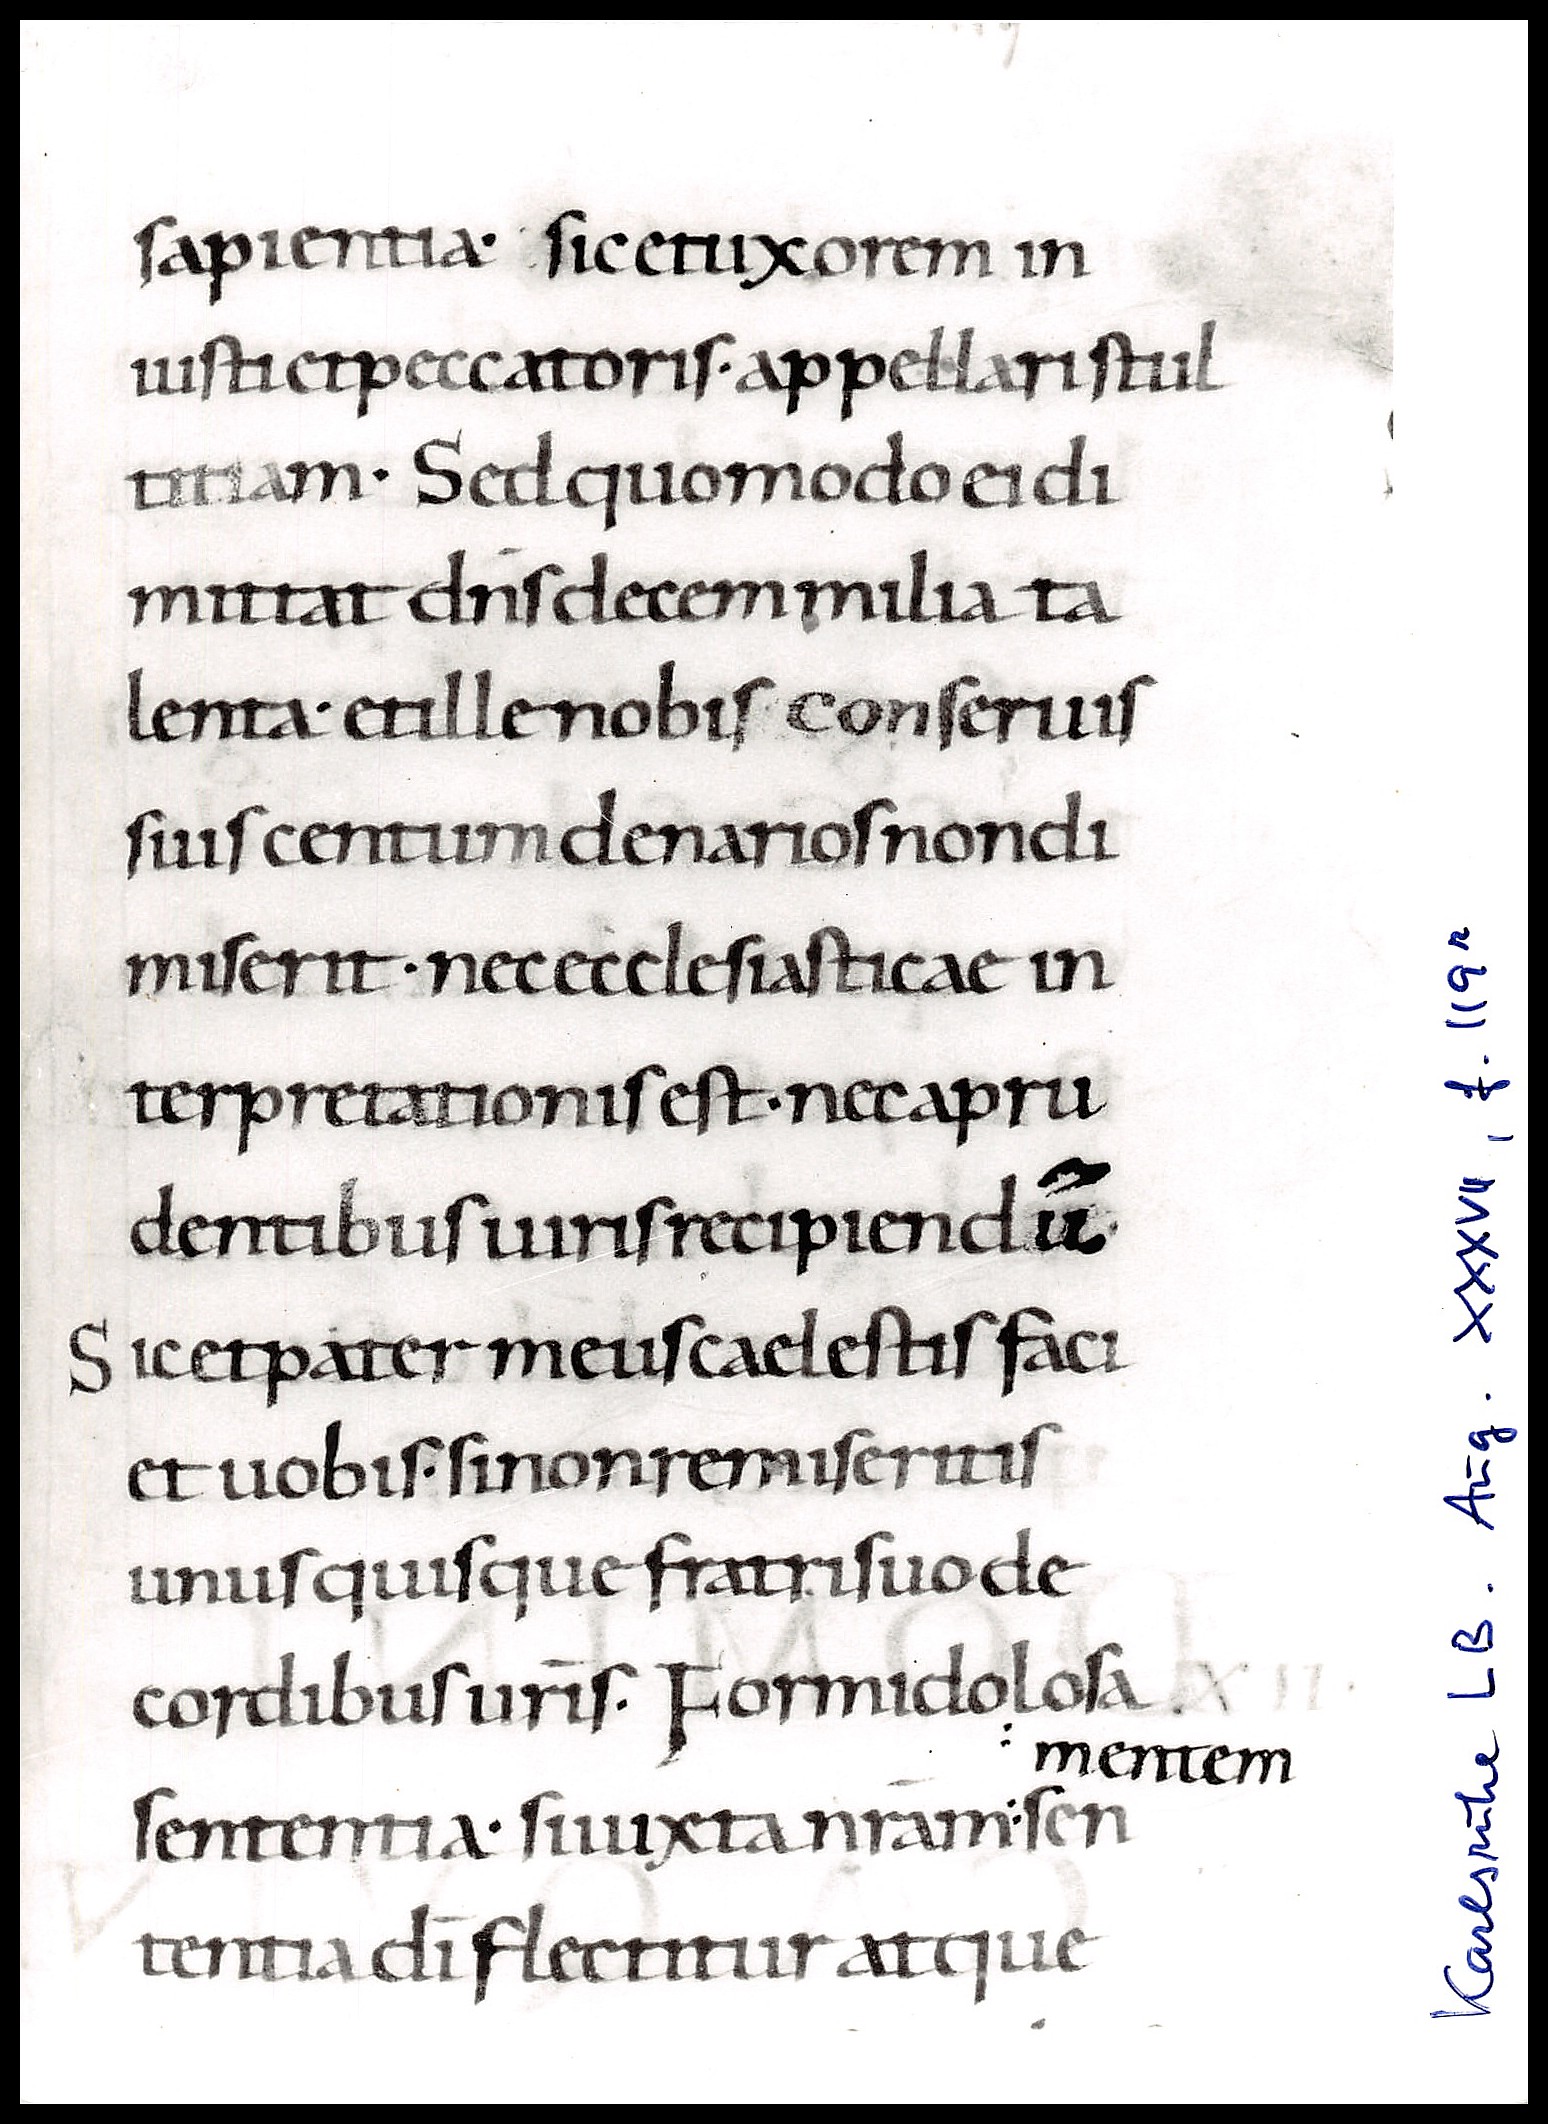 sapientia· sic et uxorem in
iusti et peccatoris· appellari stul
titiam· Sed quomodo ei di
mittat dn̄s decem milia ta
lenta· et ille nobis conseruis
suis centum denarios non di
miserit· nec ecclesiasticae in
terpretationis est· nec a pru
dentibus uiris recipiendū·
Sic et pater meus caelestis faci
et uobis· si non remiseritis
unusquisque fratri suo de
cordibus ur̄is· Formidolosa
mentem
sententia· si iuxta nr̄am sen
tentia dī flectitur atque
Karlsruhe LB. Aug. XXXVII, f. 119r